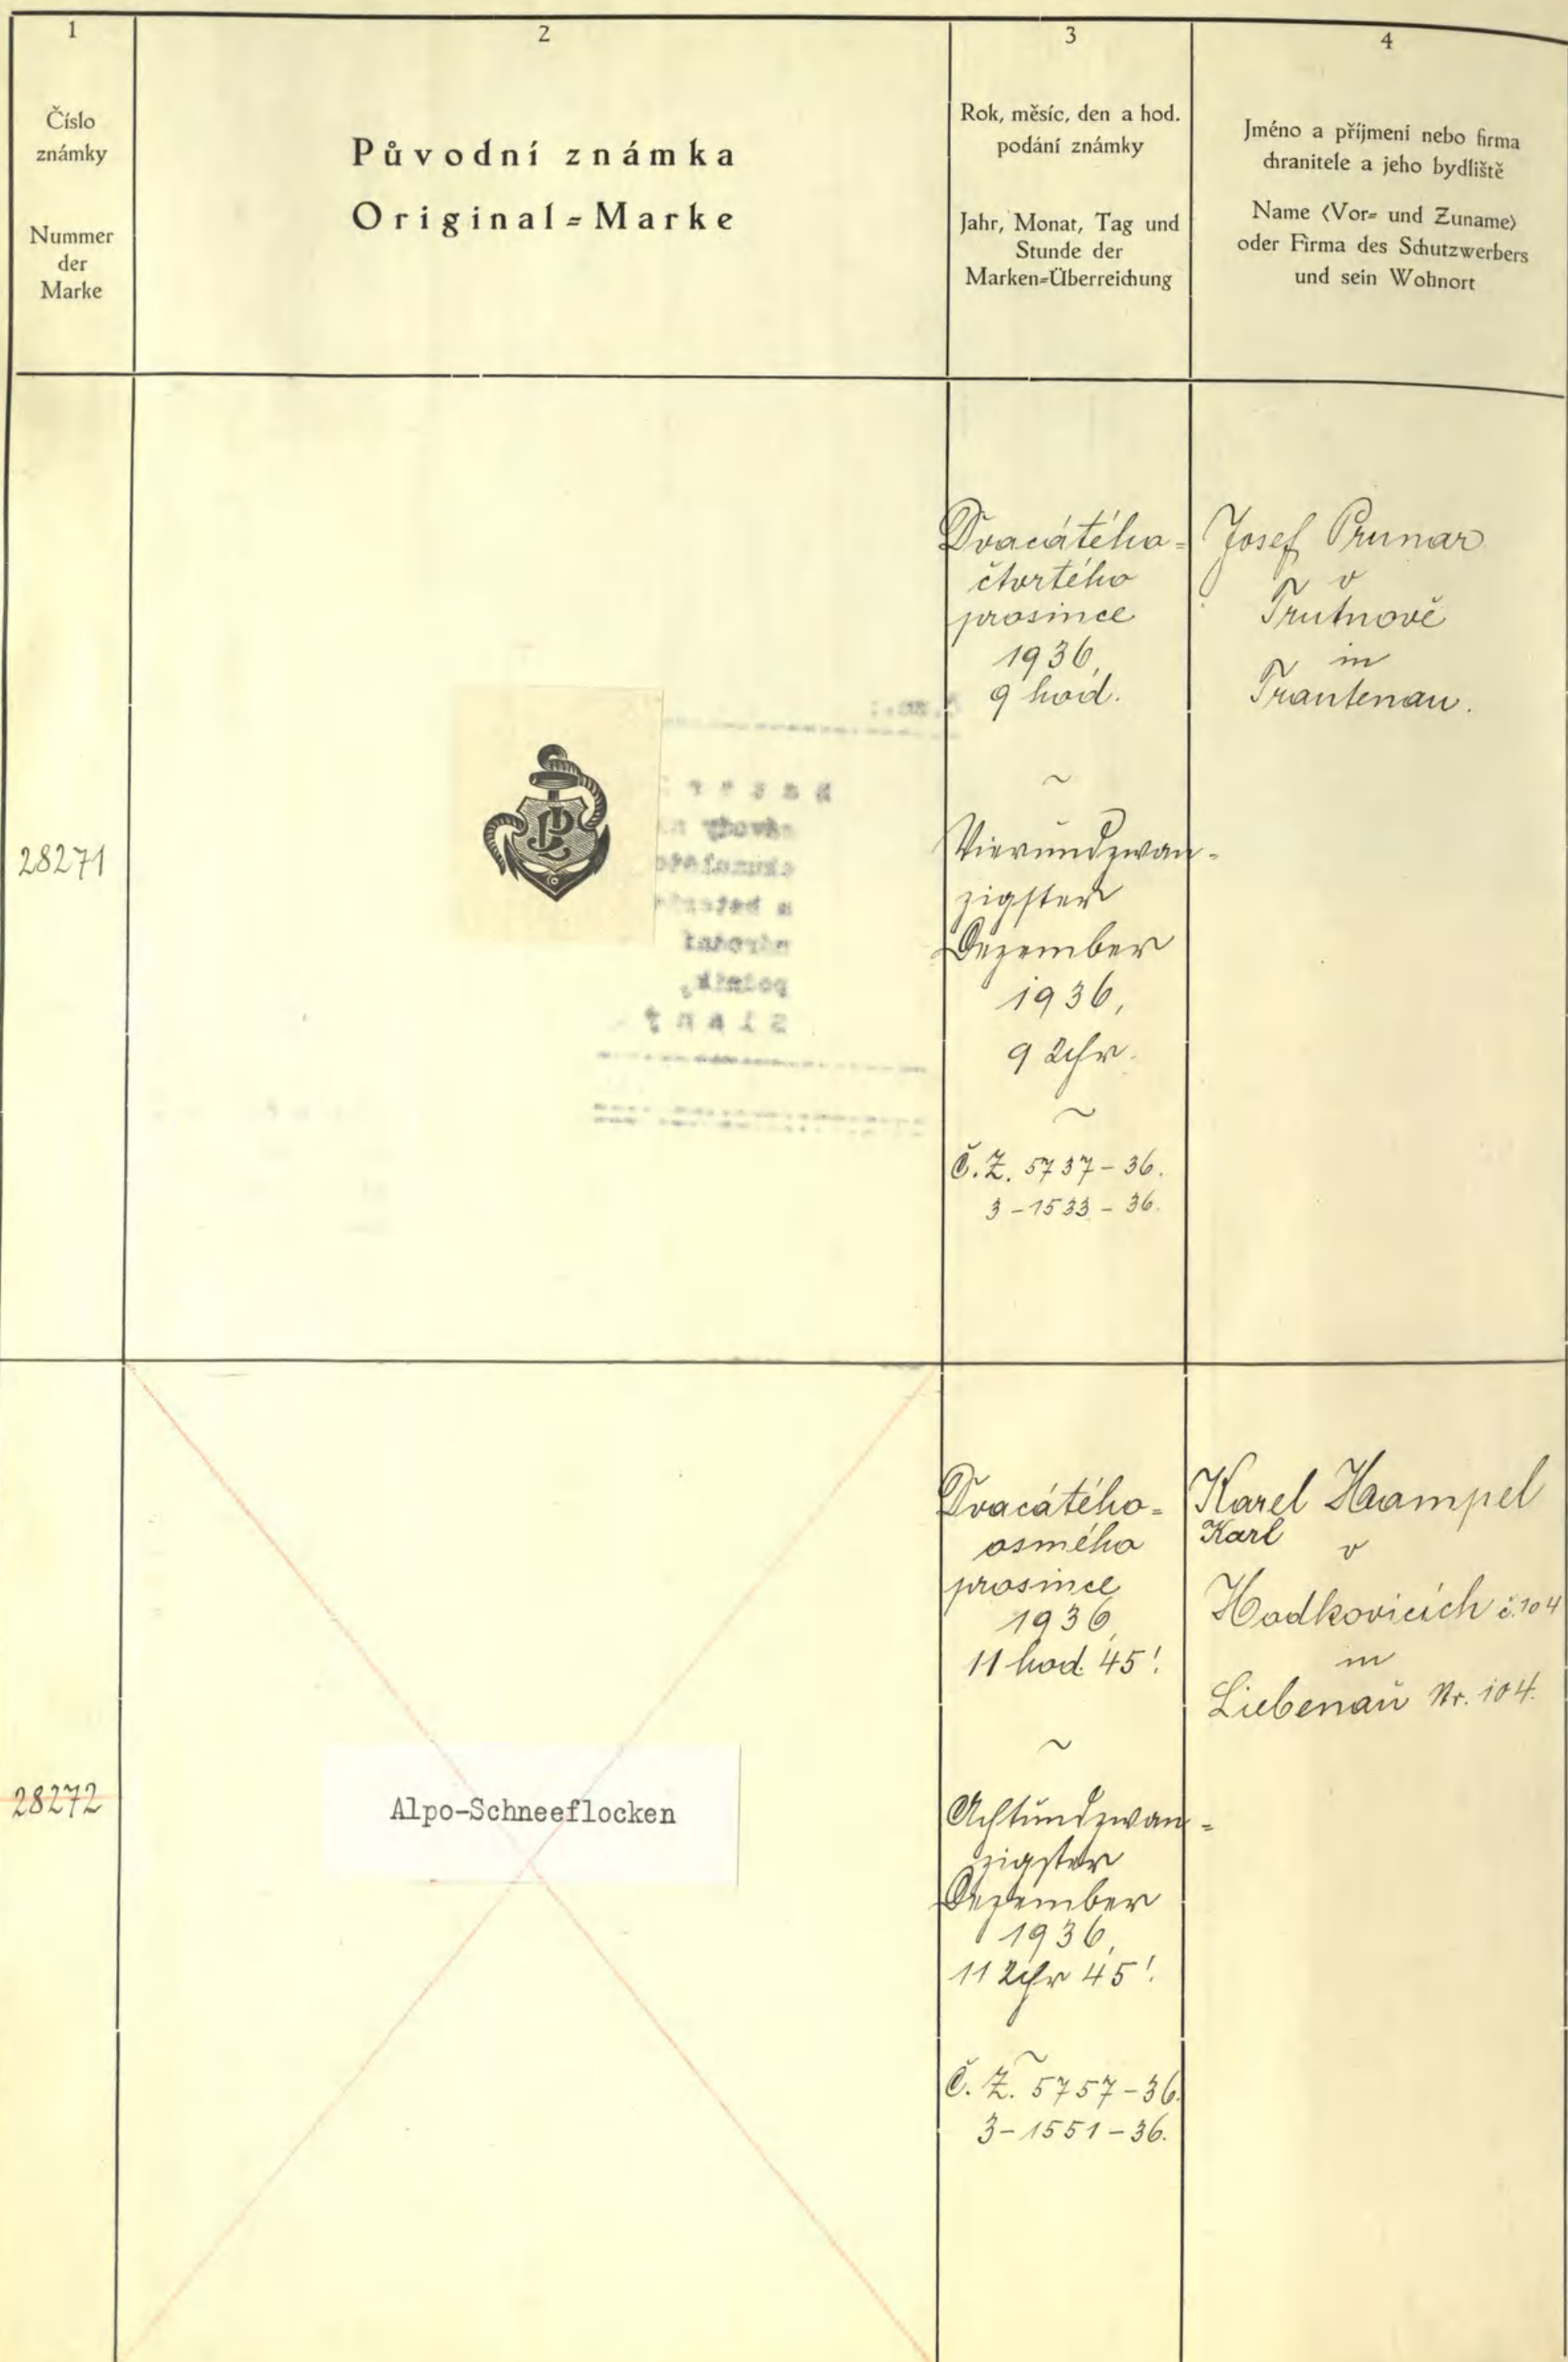 1
2
3
4
Číslo
známky
Nummer
der
Marke
Původní známka
Original=Marke
Rok, měsíc, den a hod.
podání známky
Jahr, Monat, Tag und
Stunde der
Marken=Überreichung
Jméno a příjmení nebo firma
chranitele a jeho bydliště
Name (Vor= und Zuname)
oder Firma des Schutzwerbers
und sein Wohnort
28271
Dvacátého=
čtvrtého
prosince
1936,
9 hod.
~
Vierundzwan=
zigster
Dezember
1936,
9 Uhr.
~
Č.Z. 5737-36.
3-1533-36.
Josef Prunar
v
Trutnově
in
Trautenau.
28272
Alpo-Schneeflocken
Dvacátého=
osmého
prosince
1936,
11 hod. 45'.
~
Achtundzwan=
zigster
Dezember
1936,
11 Uhr 45'.
~
Č.Z. 5757-36.
3-1551-36.
Karel
Karl
v
Hodkovicích č. 104
in
Liebenau Nr. 104.